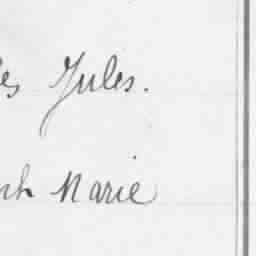 es Jules.
ph Marie